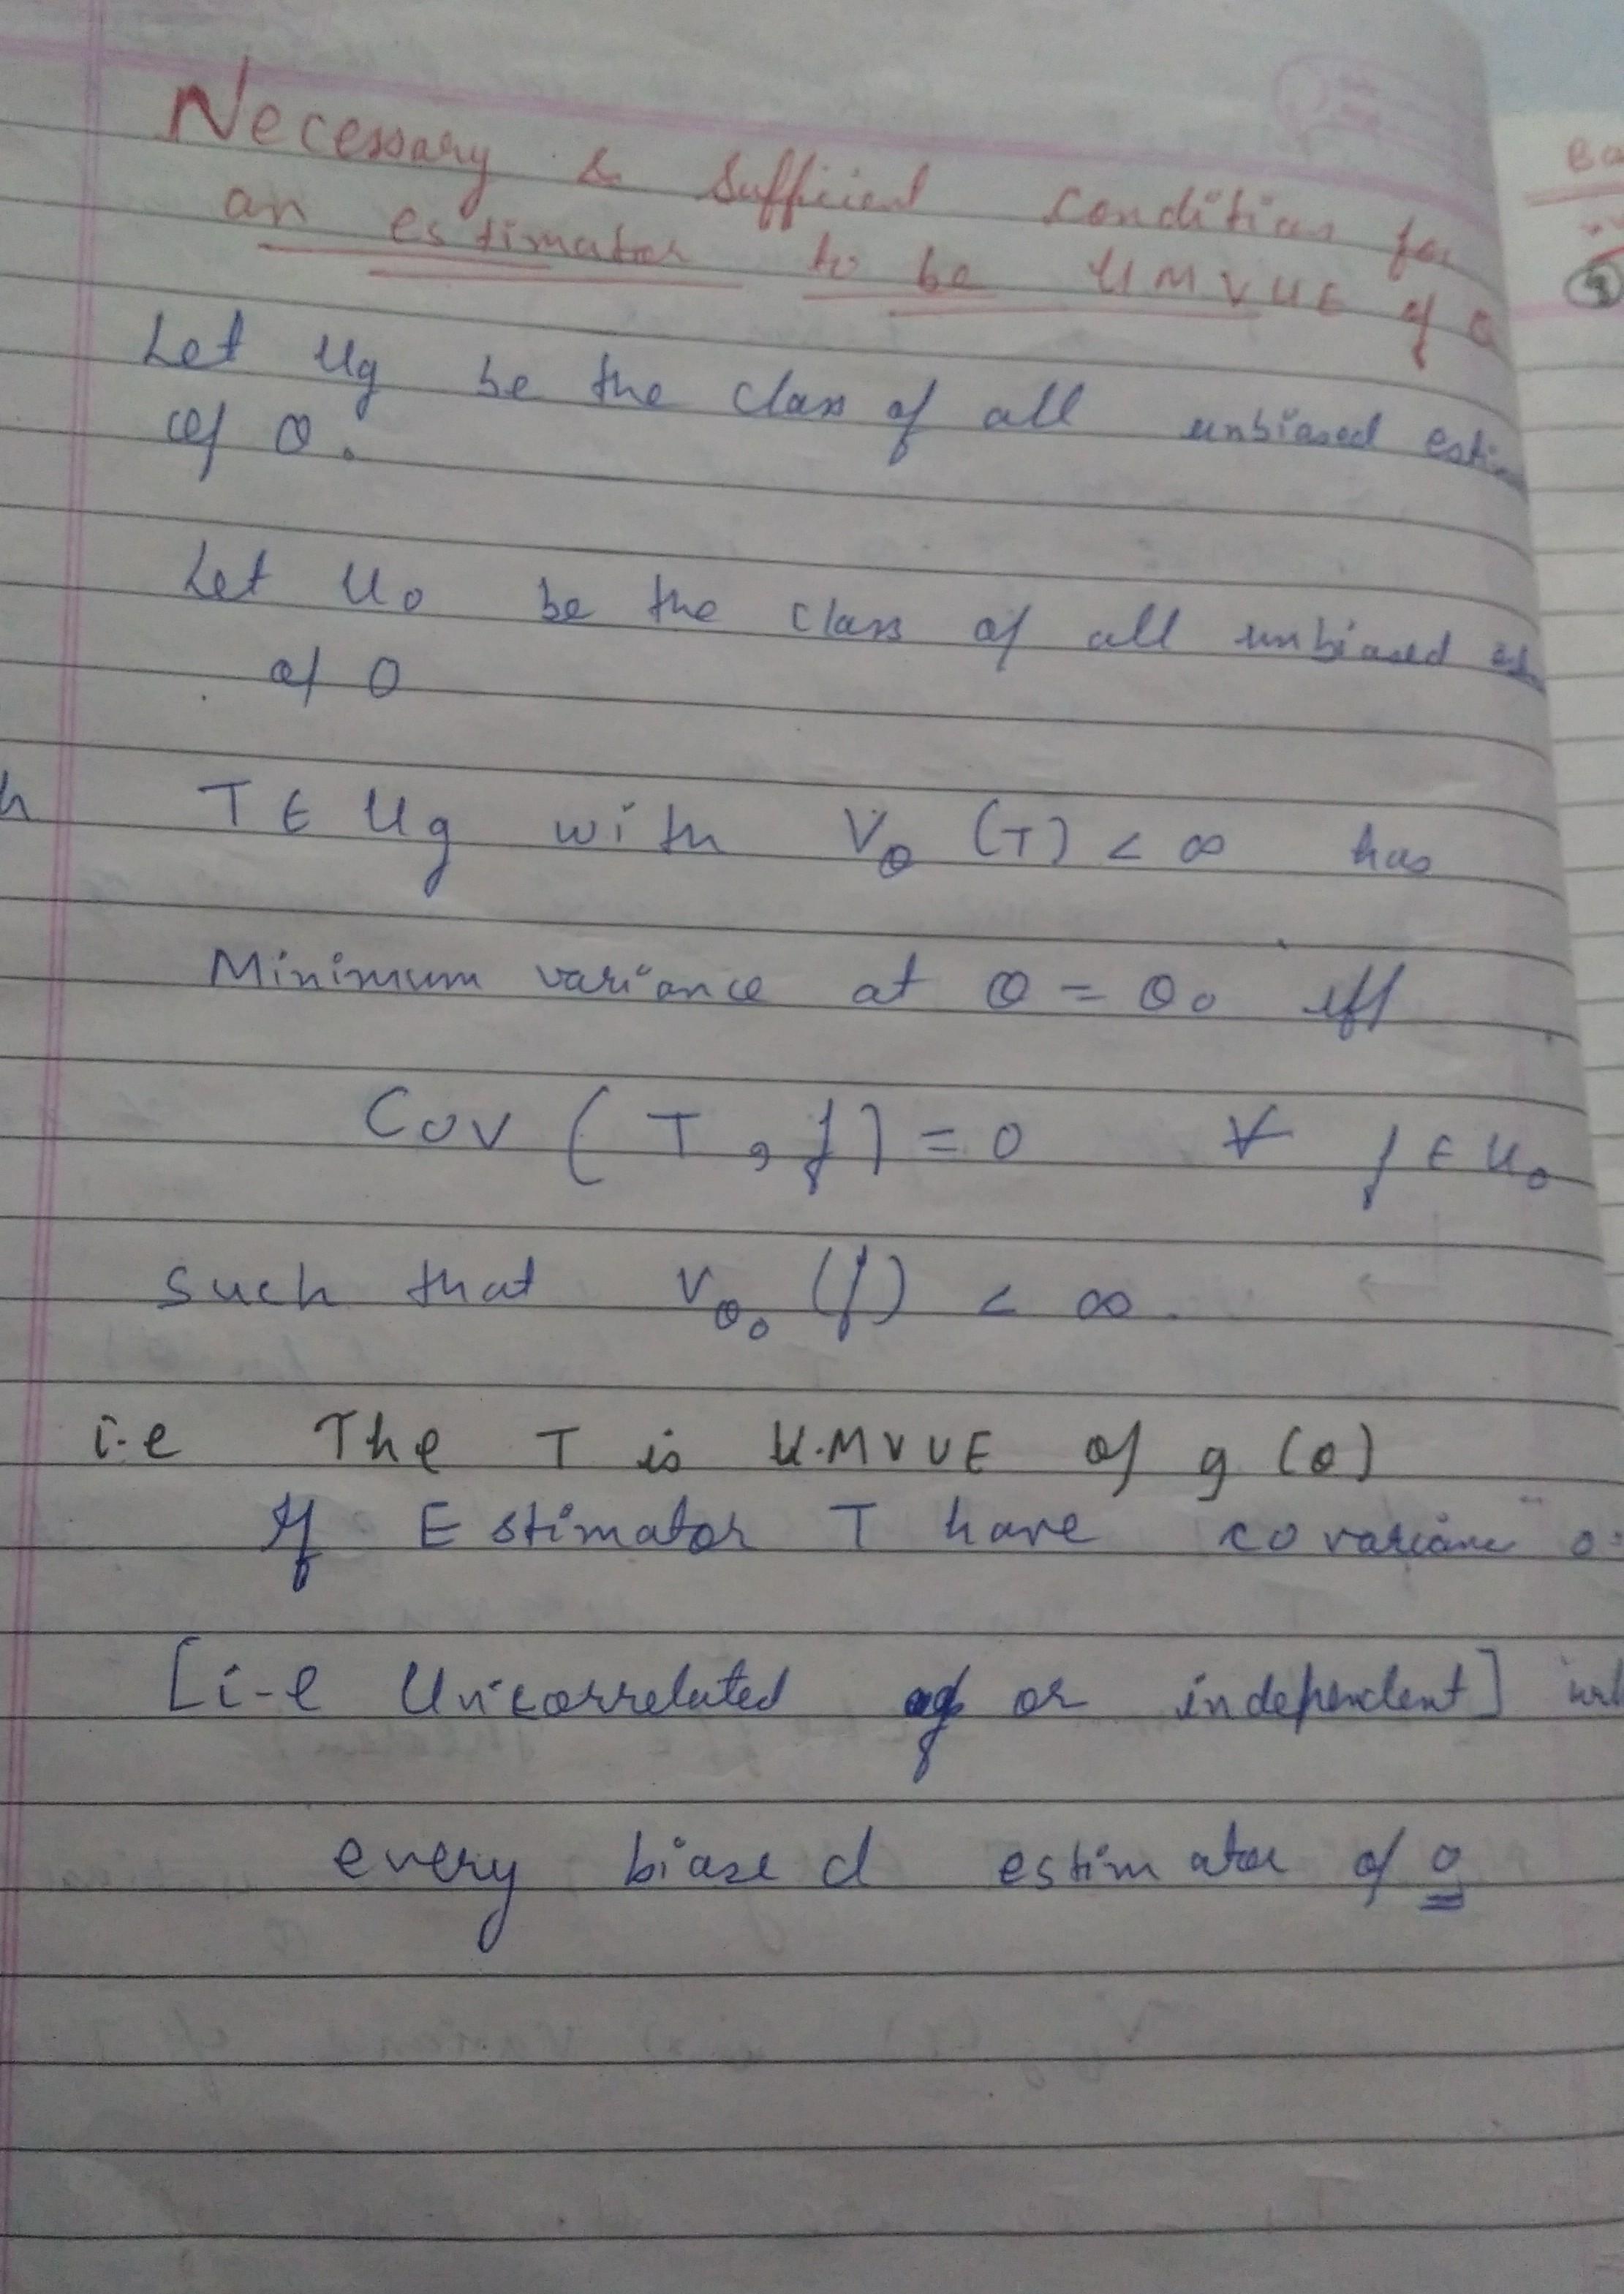 Necessary & Sufficient Condition for
an estimator to be UMVUE of θ
Let Ug be the class of all unbiased esti
of θ.
Let U0 be the class of all unbiased es
of 0
h T ∈ Ug with Vθ (T) < ∞ has
Minimum variance at θ = θ0 iff
Cov ( T , f ) = 0 ∀ f ∈ U0
Such that Vθ0 (f) < ∞.
i.e The T is U.MVUE of g (θ)
If Estimator T have covariance 0
[i-e Uncorrelated or independent]
every biased estimator of 0
Ba